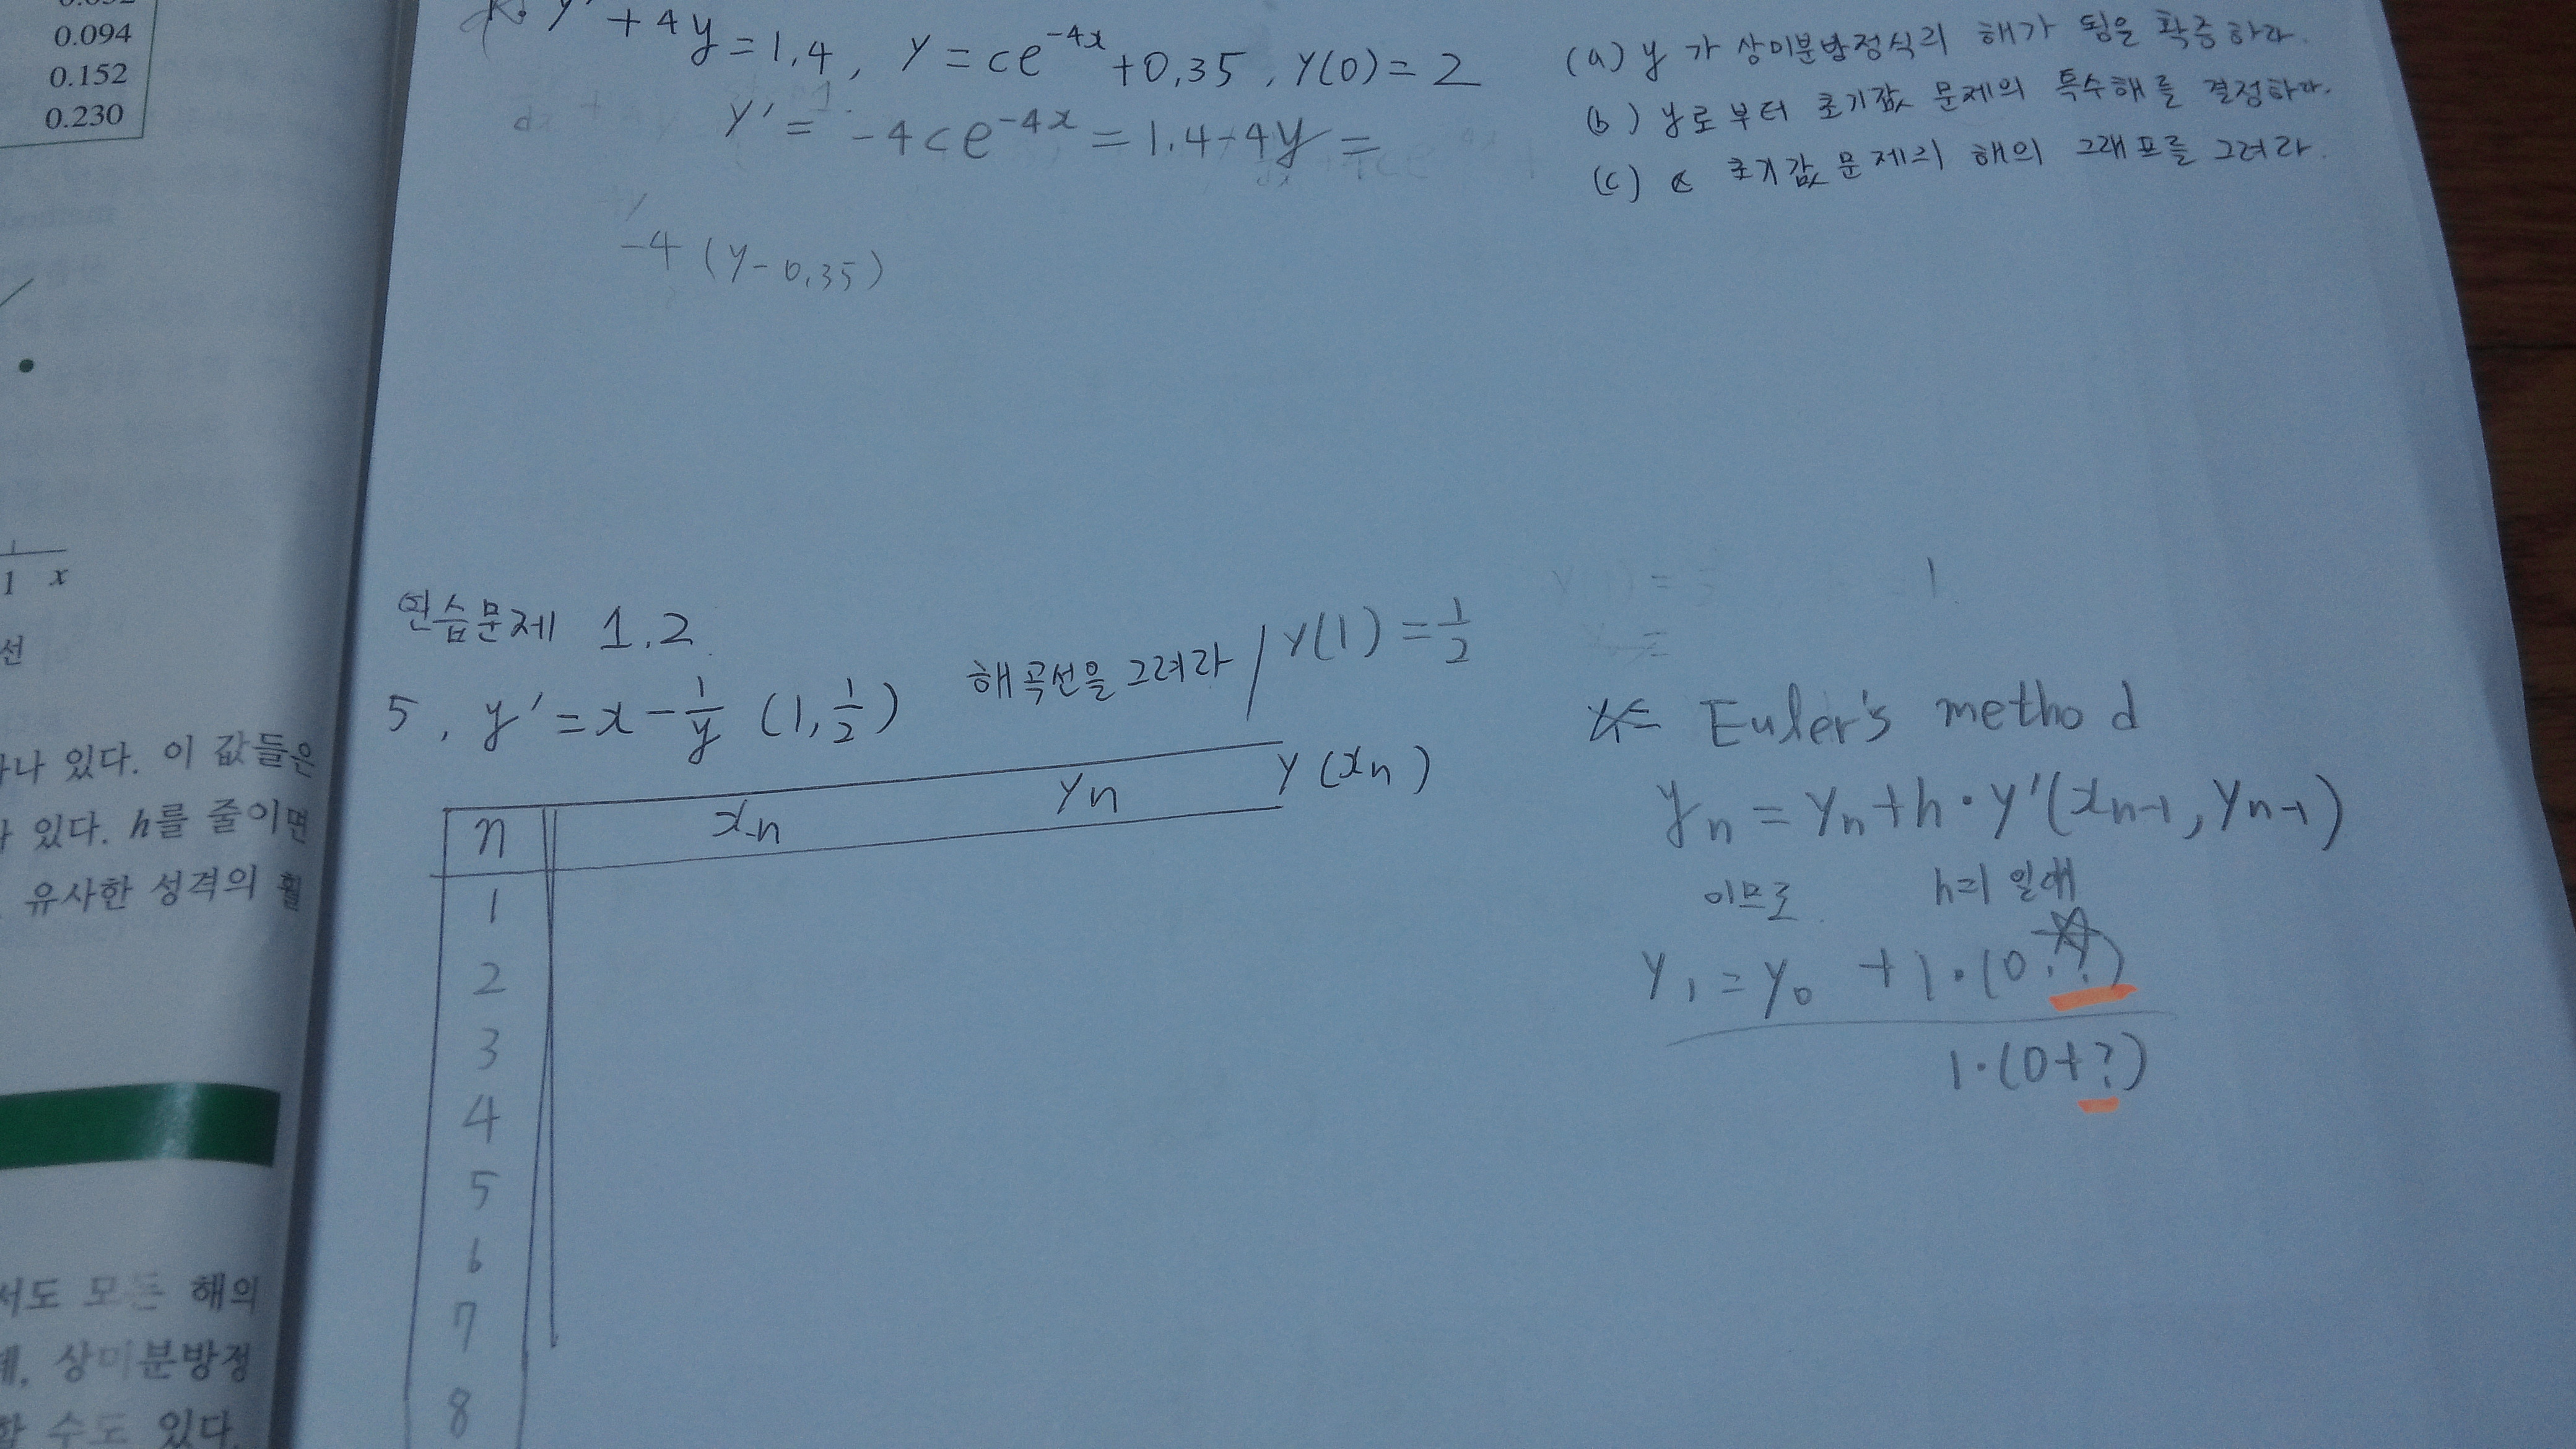 0.094
0.152
0.230
1 x
선
나 있다. 이 값들은
있다. h를 줄이면
유사한 성격의
서도 모든 해의
상미분방정
수도 있다.
y' + 4y = 1.4, y = ce^{-4x} + 0.35, y(0) = 2
y' = -4ce^{-4x} = 1.4 - 4y =
-4 (y - 0.35)
(a) y가 상미분방정식의 해가 됨을 확증하라.
(b) y로부터 초기값 문제의 특수해를 결정하라.
(c) 초기값 문제의 해의 그래프를 그려라.
연습문제 1.2
5, y' = x - \frac{1}{y} (1, \frac{1}{2}) 해곡선을 그려라 / y(1) = \frac{1}{2}
n x_n y_n y(x_n)
1
2
3
4
5
6
7
8
Euler's method
y_n = y_n + h · y'(x_{n-1}, y_{n-1})
이므로 h=1 일때
y_1 = y_0 + 1·(0 ?)
1·(0+?)